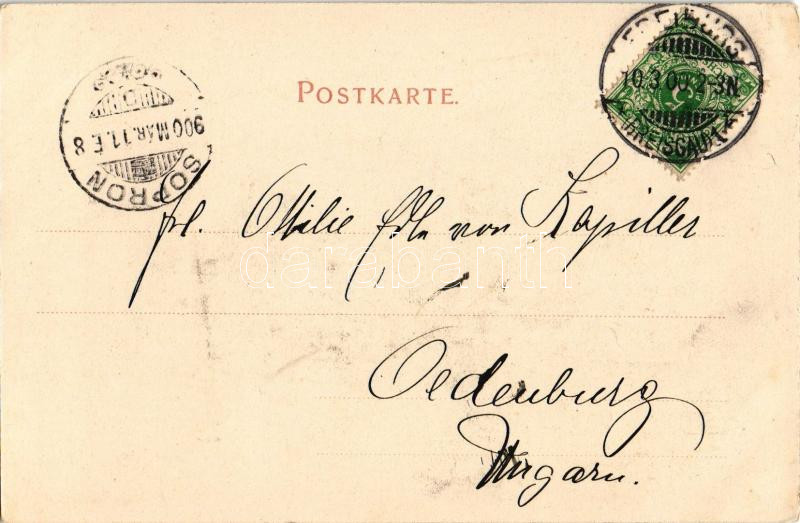 POSTKARTE.
FREIBURG
10.3.00.2-3N.
(BREISGAU)
SOPRON
900 MÁR. 11. E. 8
Frl. Ottilie Edle von Kapiller
darabanth
Oedenburg
Ungarn.